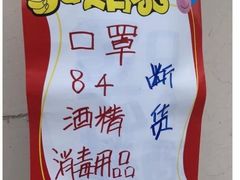 口罩
84
酒精
消毒用品
断货